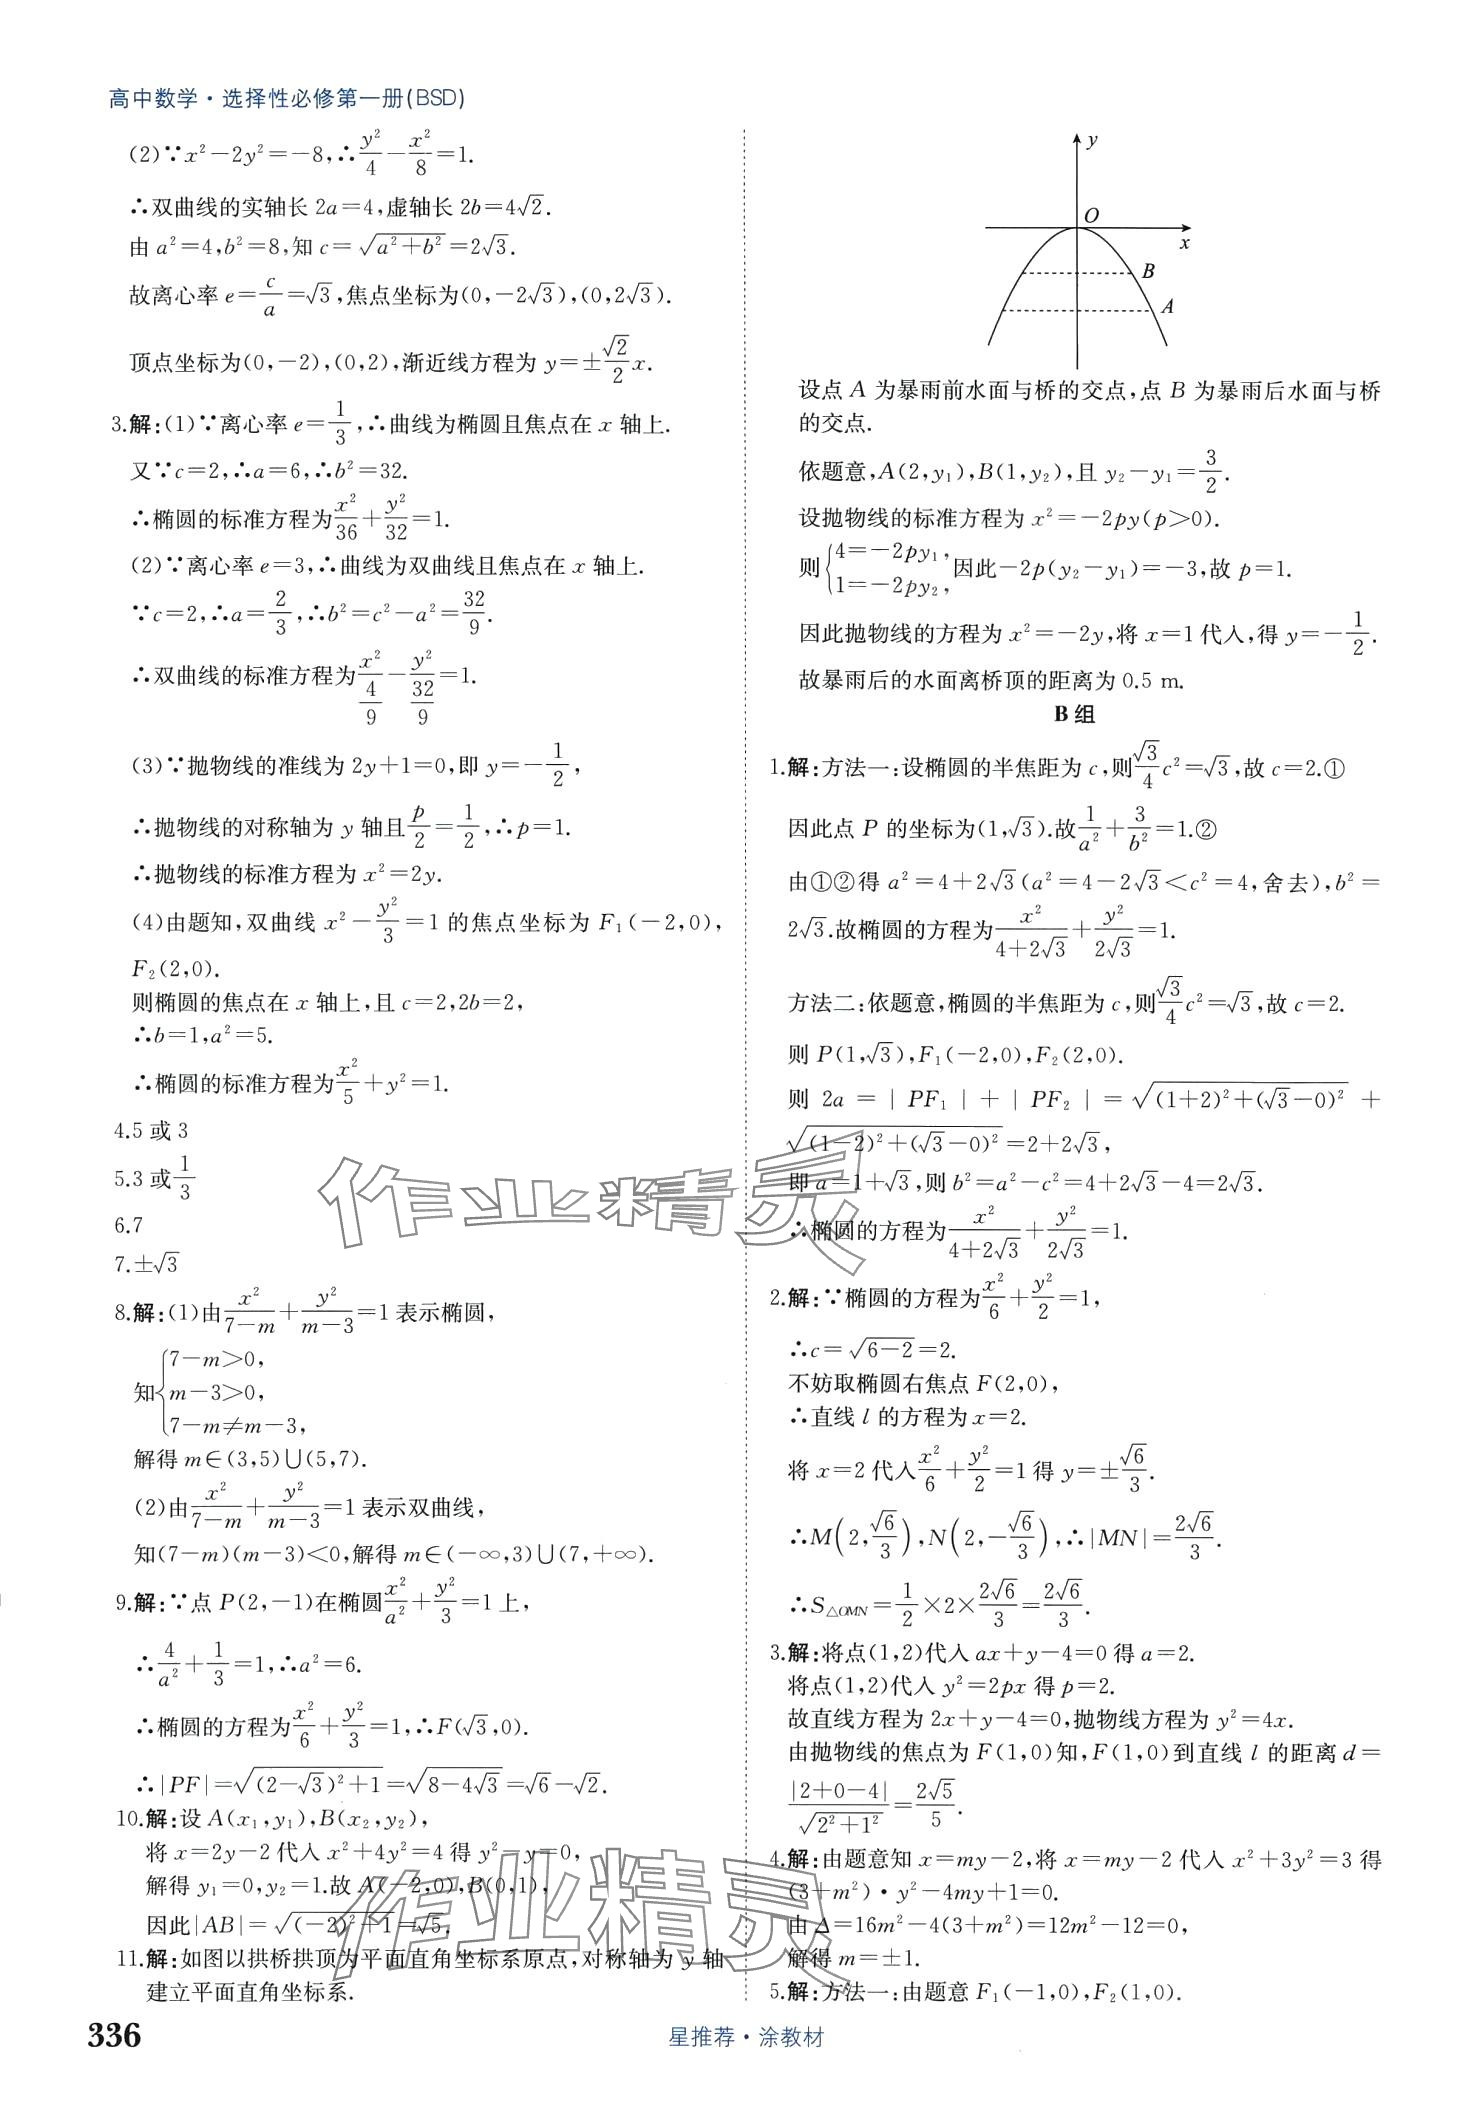 高中数学·选择性必修第一册(BSD)
(2)∵x²－2y²＝－8,∴y²/4－x²/8＝1.
∴双曲线的实轴长 2a＝4,虚轴长 2b＝4√2.
由 a²＝4,b²＝8,知 c＝√(a²＋b²)＝2√3.
故离心率 e＝c/a＝√3,焦点坐标为(0,－2√3),(0,2√3).
顶点坐标为(0,－2),(0,2),渐近线方程为 y＝±(√2/2)x.
3.解:(1)∵离心率 e＝1/3,∴曲线为椭圆且焦点在 x 轴上.
又∵c＝2,∴a＝6,∴b²＝32.
∴椭圆的标准方程为x²/36＋y²/32＝1.
(2)∵离心率 e＝3,∴曲线为双曲线且焦点在 x 轴上.
∵c＝2,∴a＝2/3,∴b²＝c²－a²＝32/9.
∴双曲线的标准方程为x²/(4/9)－y²/(32/9)＝1.
(3)∵抛物线的准线为 2y＋1＝0,即 y＝－1/2,
∴抛物线的对称轴为 y 轴且p/2＝1/2,∴p＝1.
∴抛物线的标准方程为 x²＝2y.
(4)由题知,双曲线 x²－y²/3＝1 的焦点坐标为 F₁(－2,0),
F₂(2,0).
则椭圆的焦点在 x 轴上,且 c＝2,2b＝2,
∴b＝1,a²＝5.
∴椭圆的标准方程为x²/5＋y²＝1.
4.5 或 3
5.3 或1/3
6.7
7.±√3
8.解:(1)由x²/(7－m)＋y²/(m－3)＝1 表示椭圆,
知{7－m>0,
m－3>0,
7－m≠m－3,
解得 m∈(3,5)∪(5,7).
(2)由x²/(7－m)＋y²/(m－3)＝1 表示双曲线,
知(7－m)(m－3)<0,解得 m∈(－∞,3)∪(7,＋∞).
9.解:∵点 P(2,－1)在椭圆x²/a²＋y²/3＝1 上,
∴4/a²＋1/3＝1,∴a²＝6.
∴椭圆的方程为x²/6＋y²/3＝1,∴F(√3,0).
∴|PF|＝√((2－√3)²＋1)＝√(8－4√3)＝√6－√2.
10.解:设 A(x₁,y₁),B(x₂,y₂),
将 x＝2y－2 代入 x²＋4y²＝4 得 y²－y＝0,
解得 y₁＝0,y₂＝1.故 A(－2,0),B(0,1),
因此|AB|＝√((－2)²＋1)＝√5.
11.解:如图以拱桥拱顶为平面直角坐标系原点,对称轴为 y 轴
建立平面直角坐标系.
y
O
x
B
A
设点 A 为暴雨前水面与桥的交点,点 B 为暴雨后水面与桥
的交点.
依题意,A(2,y₁),B(1,y₂),且 y₂－y₁＝3/2.
设抛物线的标准方程为 x²＝－2py(p>0).
则{4＝－2py₁,1＝－2py₂,因此－2p(y₂－y₁)＝－3,故 p＝1.
因此抛物线的方程为 x²＝－2y,将 x＝1 代入,得 y＝－1/2.
故暴雨后的水面离桥顶的距离为 0.5 m.
B 组
1.解:方法一:设椭圆的半焦距为 c,则(√3/4)c²＝√3,故 c＝2.①
因此点 P 的坐标为(1,√3).故1/a²＋3/b²＝1.②
由①②得 a²＝4＋2√3(a²＝4－2√3<c²＝4,舍去),b²＝
2√3.故椭圆的方程为x²/(4＋2√3)＋y²/(2√3)＝1.
方法二:依题意,椭圆的半焦距为 c,则(√3/4)c²＝√3,故 c＝2.
则 P(1,√3),F₁(－2,0),F₂(2,0).
则 2a＝|PF₁|＋|PF₂|＝√((1＋2)²＋(√3－0)²)＋
√((1－2)²＋(√3－0)²)＝2＋2√3,
即 a＝1＋√3,则 b²＝a²－c²＝4＋2√3－4＝2√3.
∴椭圆的方程为x²/(4＋2√3)＋y²/(2√3)＝1.
2.解:∵椭圆的方程为x²/6＋y²/2＝1,
∴c＝√(6－2)＝2.
不妨取椭圆右焦点 F(2,0),
∴直线 l 的方程为 x＝2.
将 x＝2 代入x²/6＋y²/2＝1 得 y＝±√6/3.
∴M(2,√6/3),N(2,－√6/3),∴|MN|＝2√6/3.
∴S△OMN＝1/2×2×2√6/3＝2√6/3.
3.解:将点(1,2)代入 ax＋y－4＝0 得 a＝2.
将点(1,2)代入 y²＝2px 得 p＝2.
故直线方程为 2x＋y－4＝0,抛物线方程为 y²＝4x.
由抛物线的焦点为 F(1,0)知,F(1,0)到直线 l 的距离 d＝
|2＋0－4|/√(2²＋1²)＝2√5/5.
4.解:由题意知 x＝my－2,将 x＝my－2 代入 x²＋3y²＝3 得
(3＋m²)·y²－4my＋1＝0.
由 Δ＝16m²－4(3＋m²)＝12m²－12＝0,
解得 m＝±1.
5.解:方法一:由题意 F₁(－1,0),F₂(1,0).
作业精灵
作业精灵
336
星推荐·涂教材